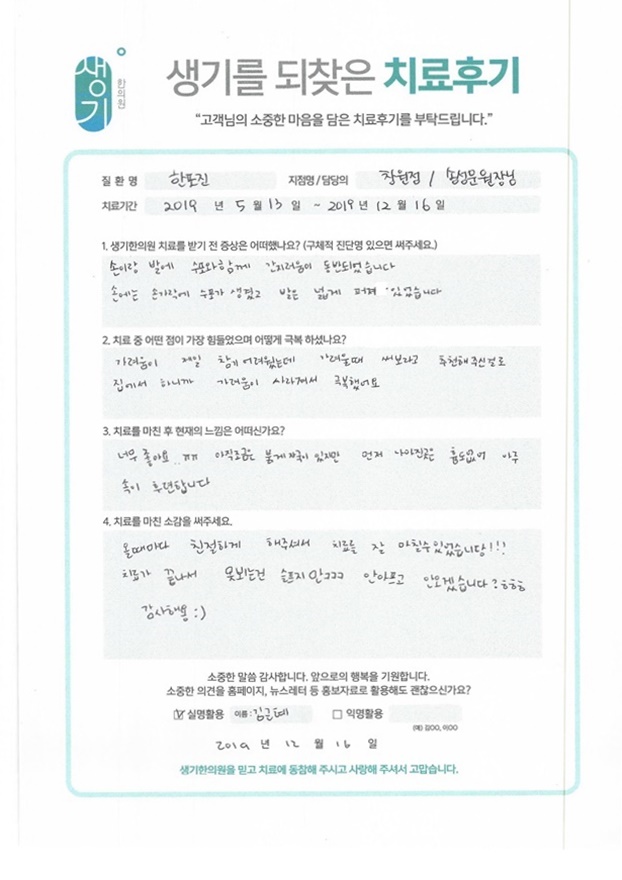 생기
한의원
생기를 되찾은 치료후기
"고객님의 소중한 마음을 담은 치료후기를 부탁드립니다."
질 환 명 한포진 지점명 / 담당의 창원점 / 송성문원장님
치료기간 2019 년 5 월 13 일 ~ 2019 년 12 월 16 일
1. 생기한의원 치료를 받기 전 증상은 어떠했나요? (구체적 진단명 있으면 써주세요.)
손이랑 발에 수포와함께 간지러움이 동반되었습니다
손에는 손가락에 수포가 생겼고 발은 넓게 퍼져 있었습니다
2. 치료 중 어떤 점이 가장 힘들었으며 어떻게 극복 하셨나요?
가려움이 제일 참기 어려웠는데 가려울때 써보라고 추천해주신걸로
집에서 하니까 가려움이 사라져서 극복했어요
3. 치료를 마친 후 현재의 느낌은 어떠신가요?
너무 좋아요.. ㅠㅠ 아직조금은 붉게 자국이 있지만 먼저 나아진곳은 흉도없어 아주
속이 후련합니다
4. 치료를 마친 소감을 써주세요.
올때마다 친절하게 해주셔서 치료를 잘 마칠수있었습니당!!!
치료가 끝나서 못보는건 슬프지만ㅋㅋㅋ 안아프고 안오겠습니다? ㅎㅎㅎ
감사해용 :)
소중한 말씀 감사합니다. 앞으로의 행복을 기원합니다.
소중한 의견을 홈페이지, 뉴스레터 등 홍보자료로 활용해도 괜찮으신가요?
실명활용 이름 : 익명활용
(예) 김OO, 이OO
2019 년 12 월 16 일
생기한의원을 믿고 치료에 동참해 주시고 사랑해 주셔서 고맙습니다.